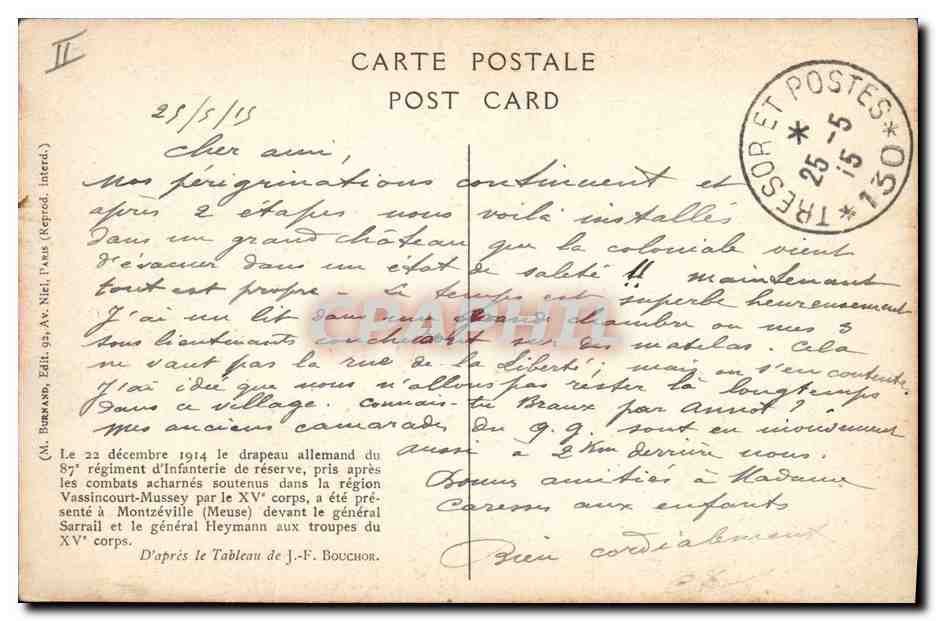 II
CARTE POSTALE
POST CARD
TRESOR ET POSTES
* 130 *
*
25 -5
15
25/5/15
Cher ami,
Nos pérégrinations continuent et
après 2 étapes nous voilà installés
dans un grand château que la coloniale vient
d'évacuer dans un état de saleté !! maintenant
tout est propre - Le temps est superbe heureusement
J'ai un lit dans une grande chambre ou mes 3
sous lieutenants couchent sur des matelas. Cela
ne vaut pas la rue de la Liberté; mais on s'en contente.
J'ai idée que nous n'allons pas rester là longtemps
dans ce village. Connais-tu Braux par Annot ?
Mes anciens camarades du q.g. sont en mouvement
aussi à 2 Km derrière nous.
Bonnes amitiés à Madame
Caresses aux enfants
Bien cordialement
(M. BURNAND, Edit. 92, Av. Niel, PARIS (Reprod. interd.)
Le 22 décembre 1914 le drapeau allemand du
87e régiment d'Infanterie de réserve, pris après
les combats acharnés soutenus dans la région
Vassincourt-Mussey par le XVe corps, a été pré-
senté à Montzéville (Meuse) devant le général
Sarrail et le général Heymann aux troupes du
XVe corps.
D'après le Tableau de J.-F. BOUCHOR.
CPAPHIL